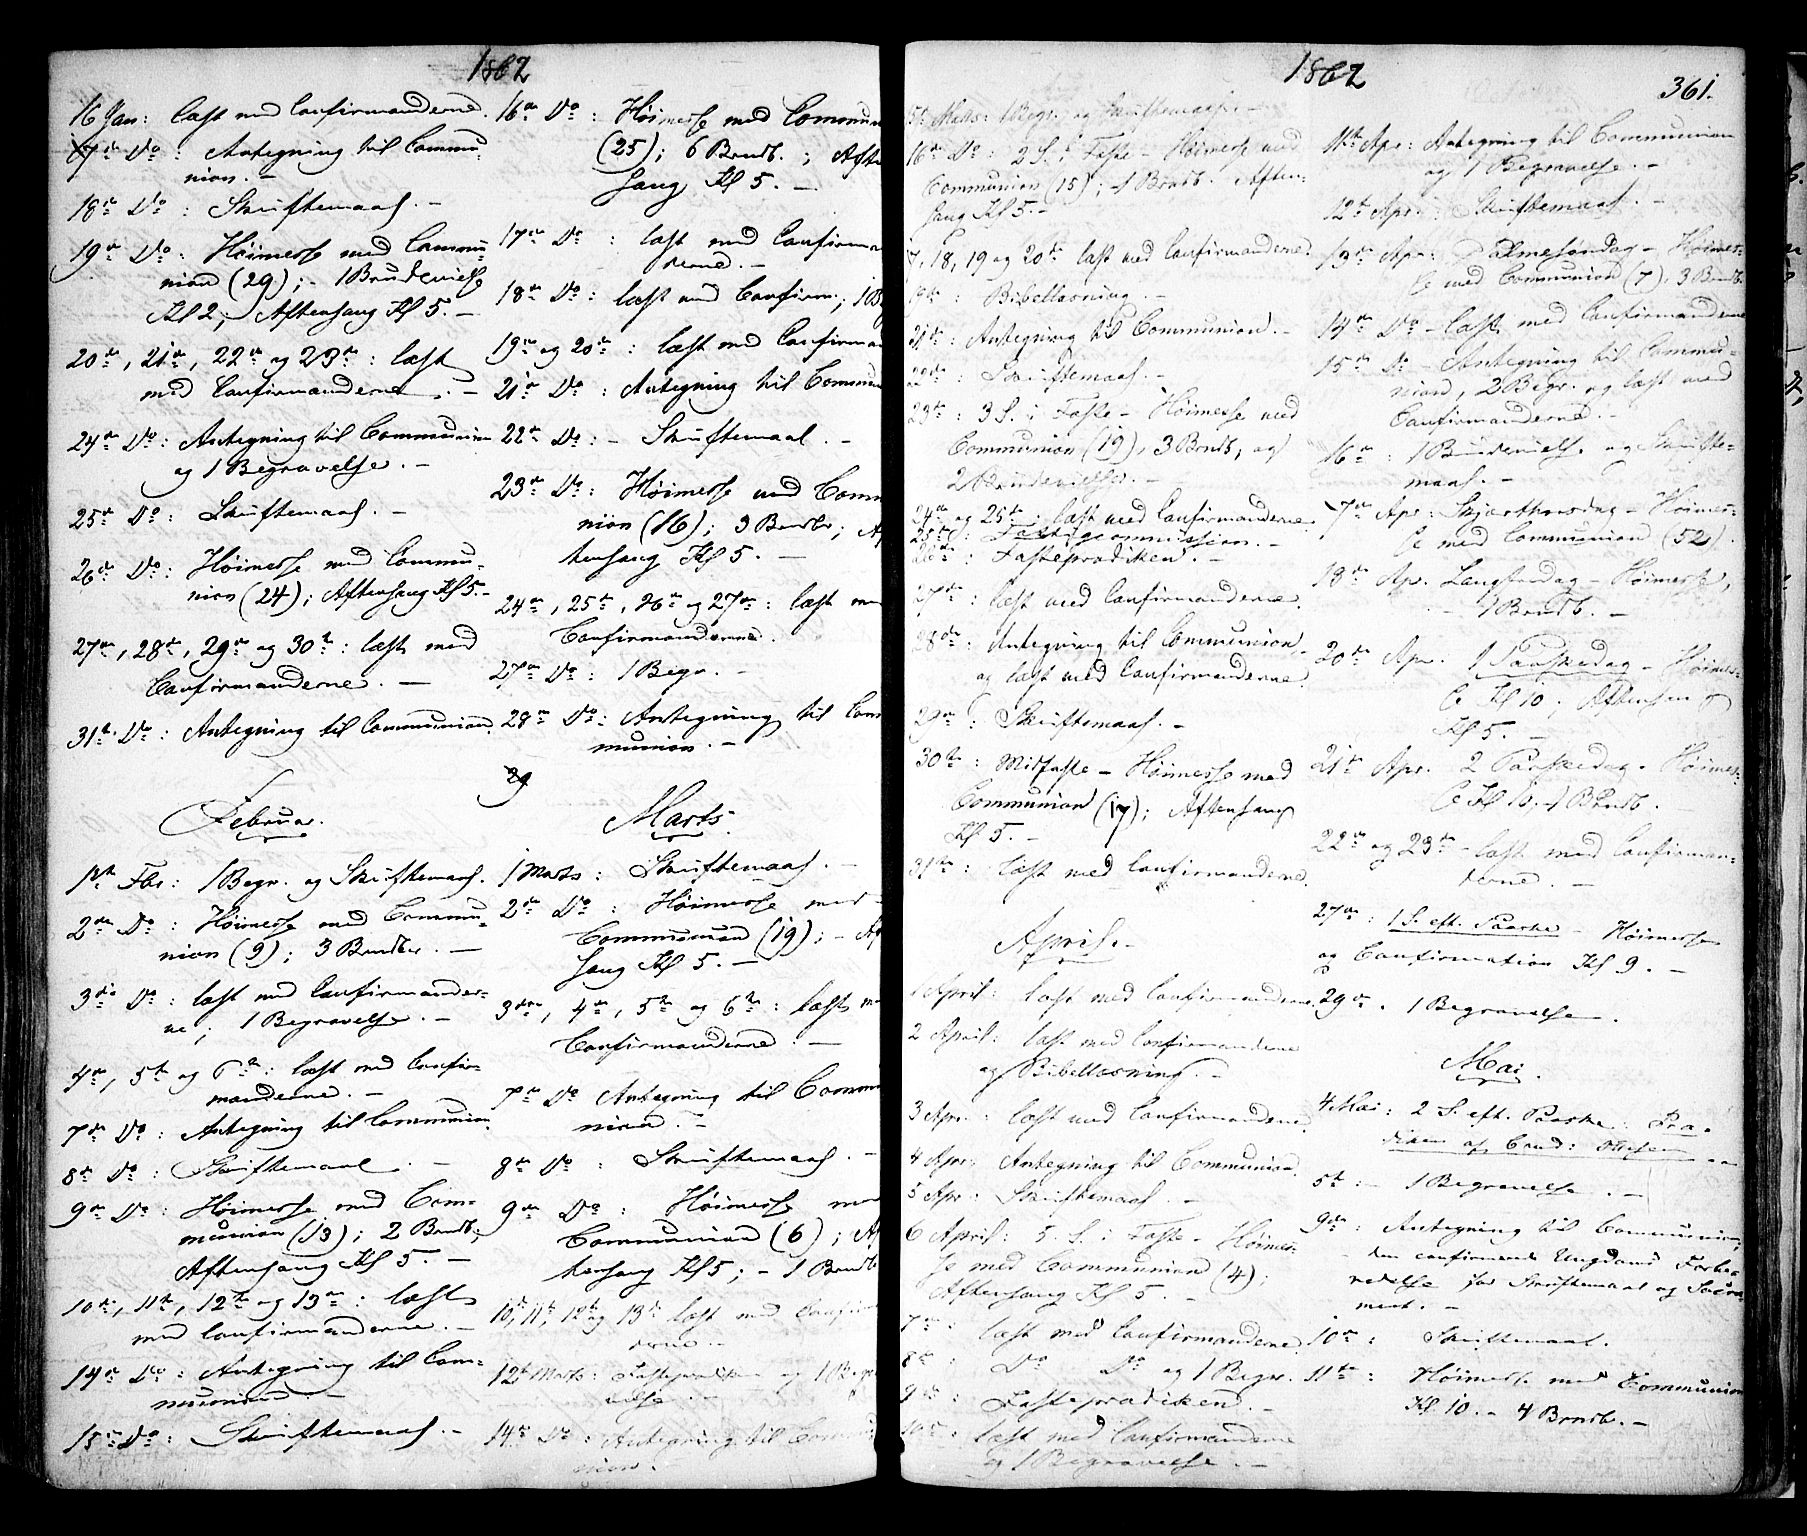 1862
16 Jan: læst med Confirmanderne.
17de Do: Antegning til Commu-
nion. -
18de Do: Skriftemaal. -
19de Do: Høimesse med Commu-
nion (29); - 1 Brudevielse
Kl 2; Aftensang Kl 5. -
20de, 21de, 22de og 23de: læst
med Confirmanderne. -
24de Do: Antegning til Communion
og 1 Begravelse. -
25de Do: Skriftemaal. -
26de Do: Høimesse med Commu-
nion (24); Aftensang Kl 5. -
27de, 28de, 29de og 30te: læst med
Confirmanderne. -
31te Do: Antegning til Communion.
Februar.
1ste Fbr: 1 Begr. og Skriftemaal.
2den Do: Høimesse med Commu-
nion (9); 3 Brndbr. -
3die Do: læst med Confirmander-
ne; 1 Begravelse. -
4de, 5te og 6te: læst med Confir-
manderne. -
7de Do: Antegning til Communion.
8de Do: Skriftemaal. -
9de Do: Høimesse med Com-
munion (13); 2 Brndb;
Aftensang Kl 5. -
10de, 11te, 12te og 13de: læst
med Confirmanderne. -
14de Do: Antegning til Com-
munion -
15de Do: Skriftemaal. -
16de Do: Høimesse med Commun
(25); 6 Brndb.; Aft
sang Kl 5. -
17de Do: læst med Confirma
derne. -
18de Do: læst med Confirm.; 1 B
19de og 20de: læst med Confirman
21de Do: Antegning til Commun
22de Do: - Skriftemaal. -
23de Do: Høimesse med Comm
nion (16); 3 Brndbr; Af
tensang Kl 5. -
24de, 25de, 26de og 27de: læst me
Confirmanderne.
27de Do: 1 Begr. -
28de Do: Antegning til Com
munion. -
29
Marts.
1 Marts: Skriftemaal. -
2den Do: Høimesse med
Communion (19); - Af
sang Kl 5. -
3die, 4de, 5te og 6te: læst m
Confirmanderne. -
7de Do Antegning til Commu
nion. -
8de Do: Skriftemaal. -
9de Do: Høimesse me
Communion (6); Af
tensang Kl 5; - 1 Brndb
10de, 11te, 12te og 13de læst med Confirm
derne -
12te Marts: Fasteprædiken og 1 Begra
velse. -
14de Do: Antegning til Commu
nion. -
1862
361.
15de Marts: 1 Begr. og Skriftemaal. -
16de Do: 2 S. i Faste - Høimesse med
Communion (15); - 1 Brndb. Aften-
sang Kl 5. -
17, 18, 19 og 20de læst med Confirmanderne.
19de: Bibellæsning. -
21de: Antegning til Communion. -
22de: Skriftemaal. -
23de: 3 S. i Faste - Høimesse med
Communion (19), 3 Brndb, og
2 Brudevielser. -
24de og 25de: læst med Confirmanderne
25de: Fattigcommission. -
26de: Fasteprædiken. -
27de: læst med Confirmanderne.
28de: Antegning til Communion
og læst med Confirmanderne.
29de: Skriftemaal. -
30te: Midfaste - Høimesse med
Communion (17); Aftensang
Kl 5. -
31te: læst med Confirmanderne.
April. -
1 April: læst med Confirmanderne.
2 April: læst med Confirmanderne
og Bibellæsning. -
3 Apr: læst med Confirmanderne.
4 Apr: Antegning til Communion.
5 Apr: Skriftemaal. -
6 April: 5. S. i Faste - Høimes-
se med Communion (4);
Aftensang Kl 5. -
7de: læst med Confirmanderne.
8de: Do Do og 1 Begr.
9de: Fasteprædiken. -
10de: læst med Confirmanderne
og 1 Begravelse. -
11te Apr: Antegning til Communion
og 1 Begravelse. -
12te Apr: Skriftemaal. -
13de Apr: Palmesøndag - Høimes-
se med Communion (7). 3 Brndb.
14de Do - læst med Confirmanderne
15de Do - Antegning til Commu-
nion, 2 Begr. og læst med
Confirmanderne. -
16de: 1 Brudevielse og Skrifte-
maal. -
17de Apr: Skjærthorsdag - Høimes-
se med Communion (52).
18de Ap. Langfredag - Høimesse,
1 Brndb. -
20de Apr. 1 Paaskedag - Høimes-
se Kl 10; Aftensang
Kl 5. -
21de Apr. 2 Paaskedag. Høimes-
se Kl 10, - 1 Brndb.
22de og 23de - læst med Confirman-
derne. -
27de: 1 S. eft. Paaske - Høimesse
og Confirmation Kl 9. -
29de. 1 Begravelse.
Mai.
4 Mai: 2 S. eft. Paaske: Præ-
diken af Cand:
5te: - 1 Begravelse. -
9de: Antegning til Communion,
den confirmerede Ungdoms Forbe-
redelse for Skriftemaal og Sacra-
ment. -
10de: Skriftemaal.
11te: Høimesse med Communion
Kl. 10. - 4 Brndb. -